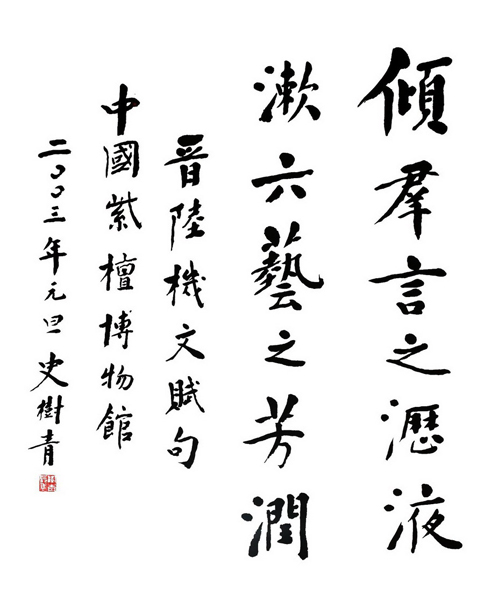 傾羣言之瀝液
漱六藝之芳潤
晋陸機文賦句
中國紫檀博物館
二〇〇三年元旦 史樹青